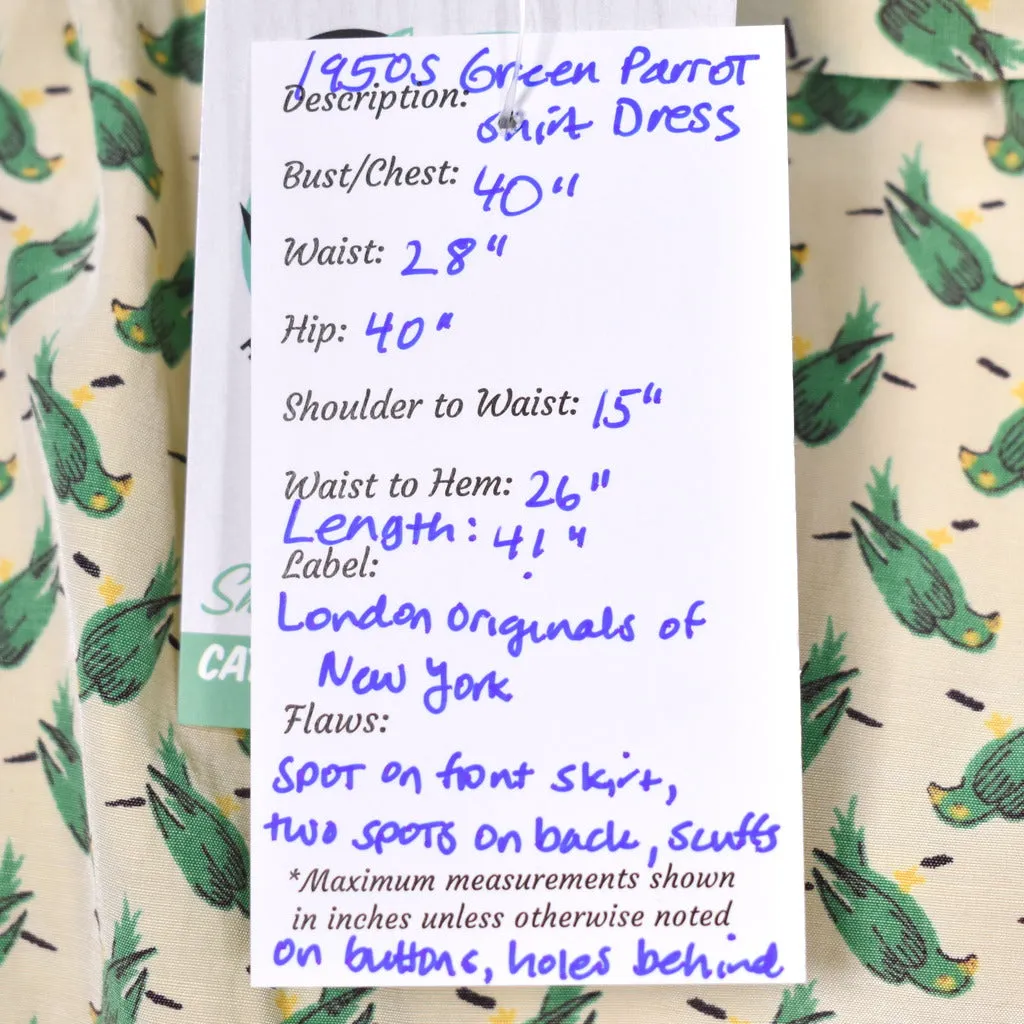 1950s Green Parrot
Description:
Shirt Dress
Bust/Chest: 40"
Waist: 28"
Hip: 40"
Shoulder to Waist: 15"
Waist to Hem: 26"
Length: 41"
Label:
London Originals of
New York
Flaws:
Spot on front skirt,
two spots on back, scuffs
*Maximum measurements shown
in inches unless otherwise noted
on buttons, holes behind